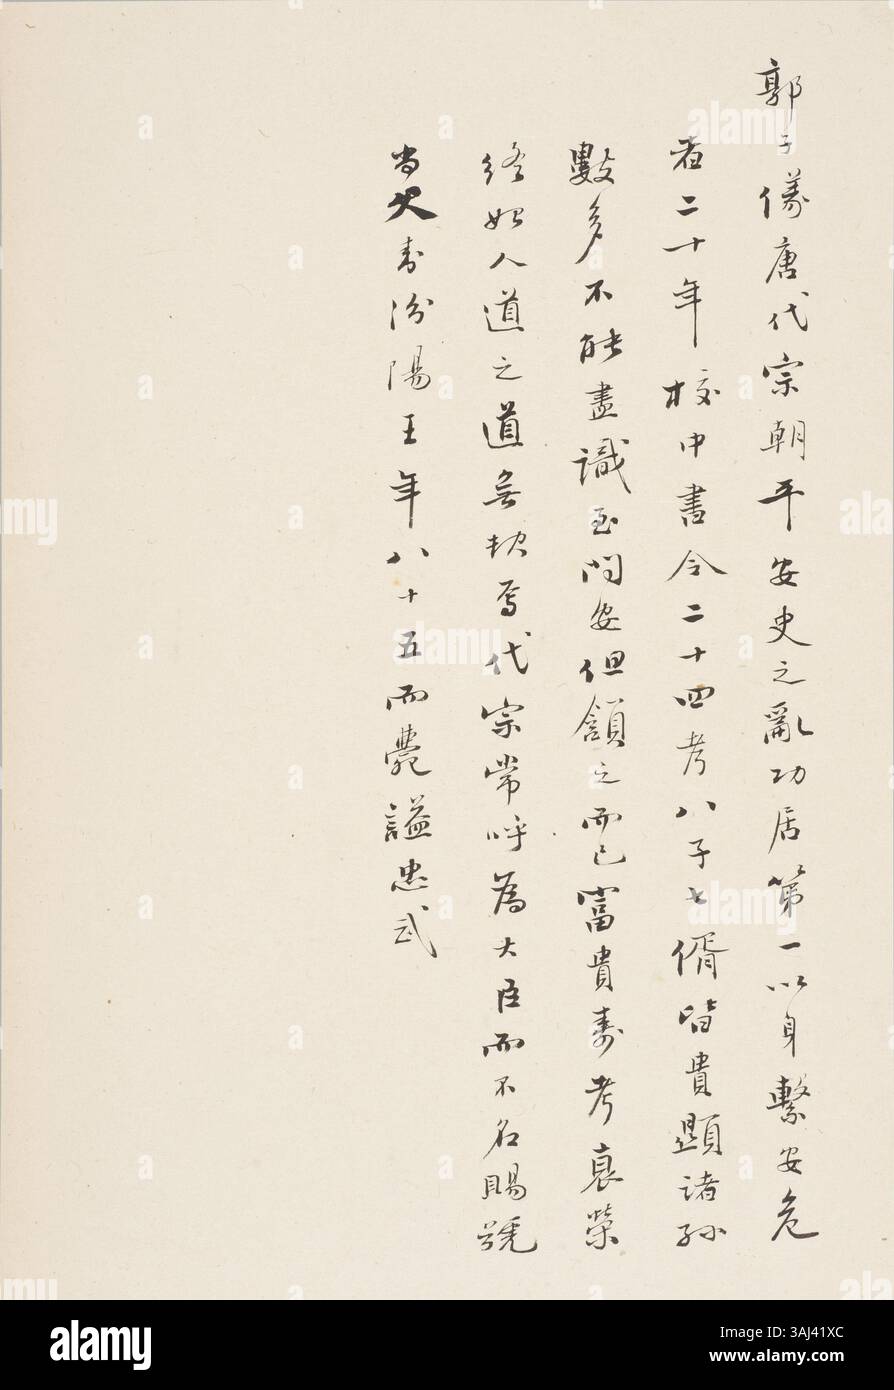 郭子儀唐代宗朝平安史之亂功居第一以身繫安危
者二十年校中書令二十四考八子七偦皆貴顯諸孫
數多不能盡識至問安但頷之而已富貴壽考哀榮
終始人道之道無缺焉代宗常呼為大臣而不名賜號
尚父封汾陽王年八十五而薨謚忠武
alamy
a
Image ID: 3AJ41XC
www.alamy.com